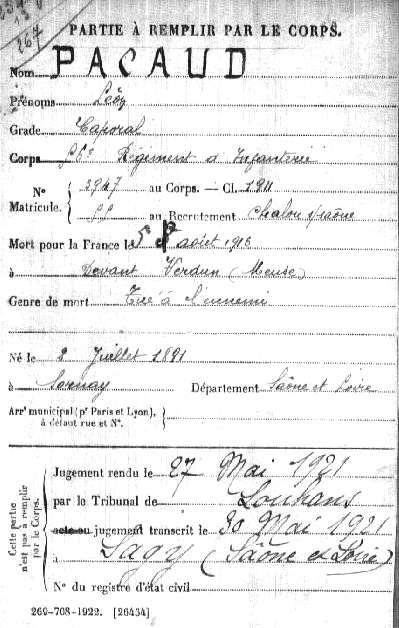 267
PARTIE À REMPLIR PAR LE CORPS.
Nom PACAUD
Prénoms Léon
Grade Caporal
Corps Régiment d'Infanterie
N° Matricule. { 2947 au Corps. — Cl. 1911
au Recrutement Chalon s/Saône
Mort pour la France le 5 août 1916
à Devant Verdun (Meuse)
Genre de mort Tué à l'ennemi
Né le 2 Juillet 1891
à Sornay Département Saône et Loire
Arrt municipal (pr Paris et Lyon), à défaut rue et N°. {
Cette partie n'est pas à remplir par le Corps.
Jugement rendu le 27 Mai 1921
par le Tribunal de Louhans
acte ou jugement transcrit le 30 Mai 1921
à Sagy (Saône et Loire)
N° du registre d'état civil
269-708-1922. [26434]